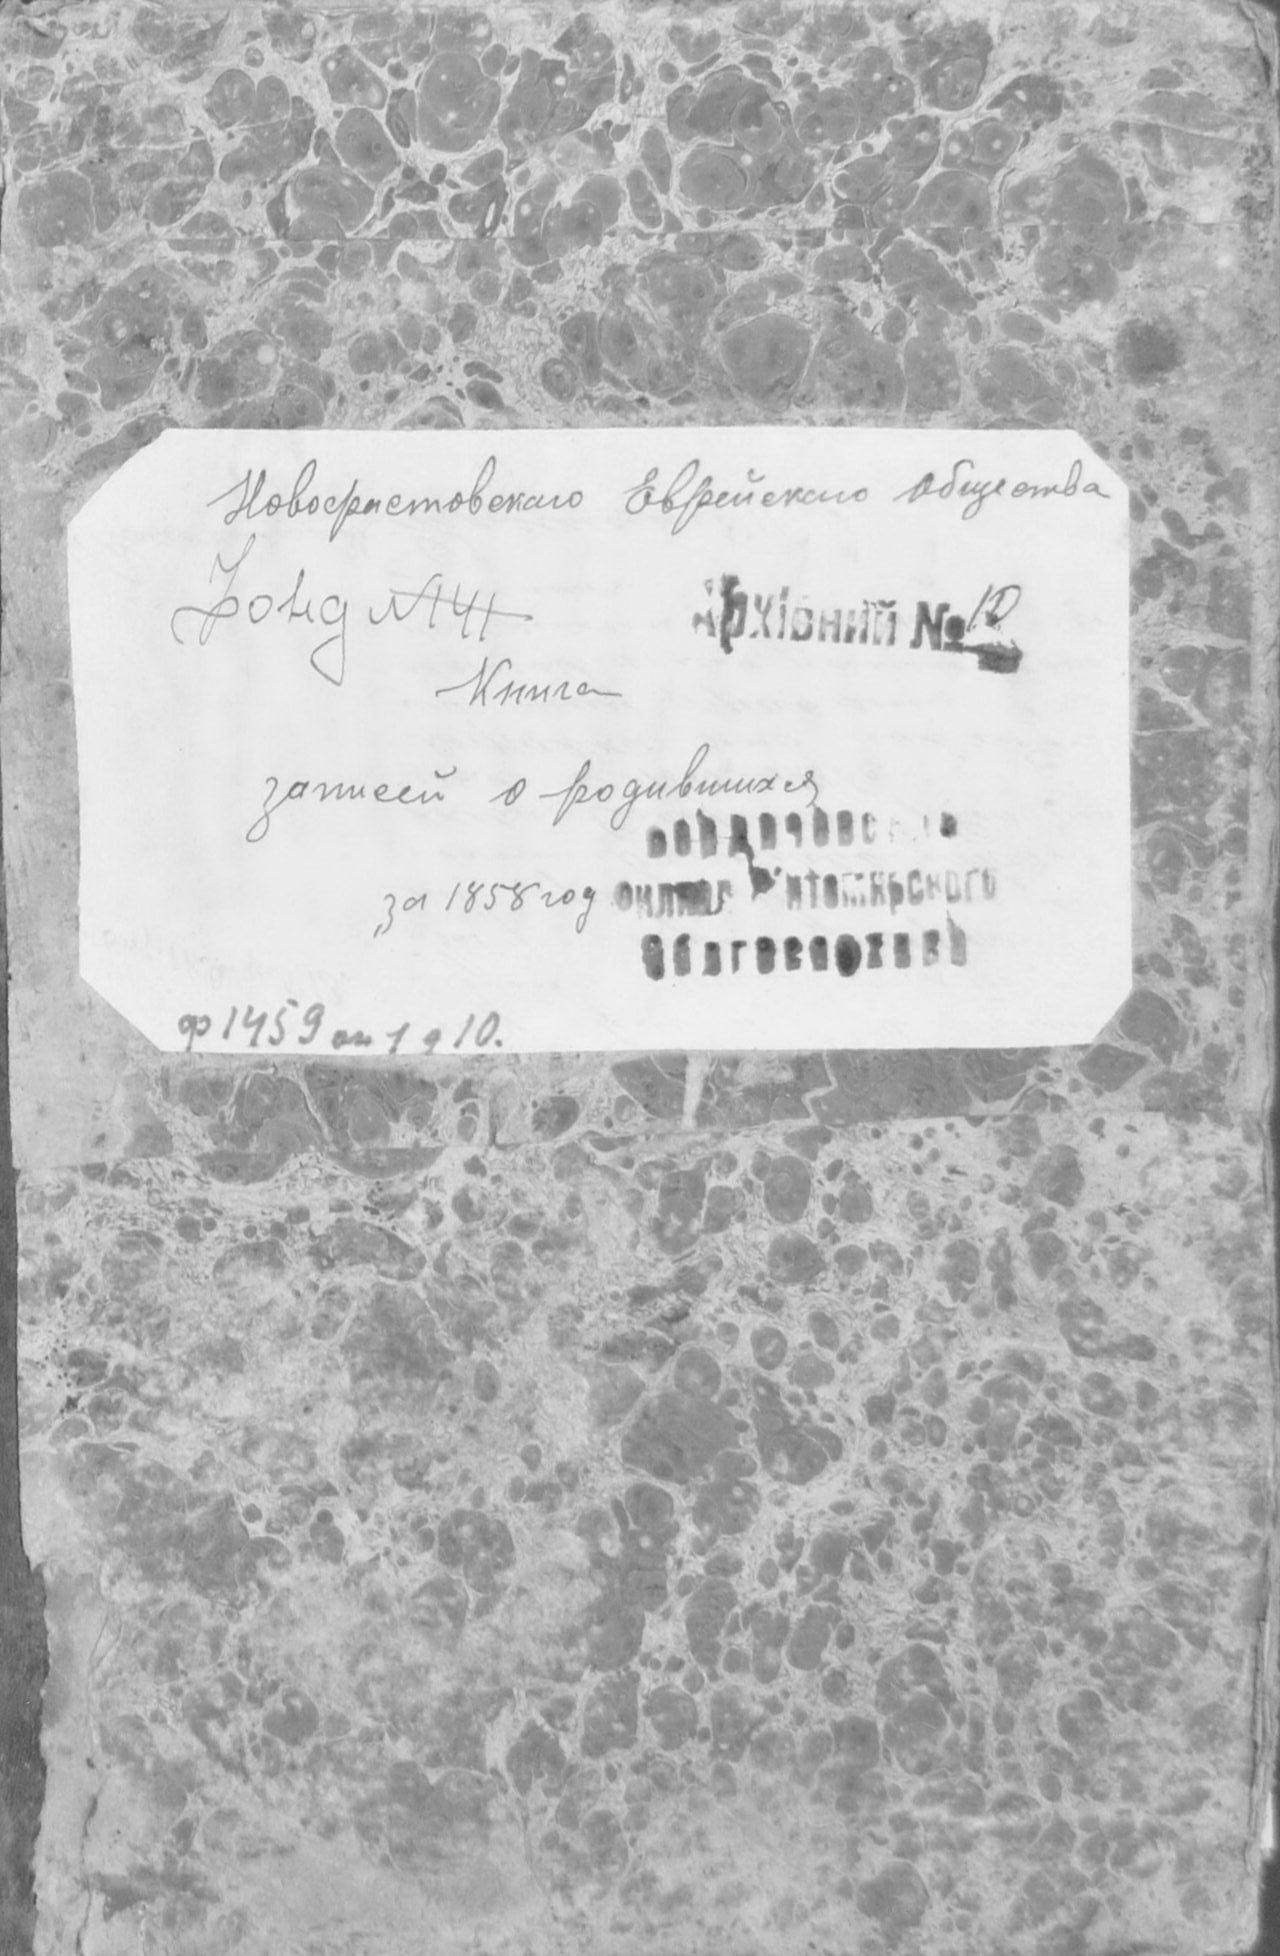 Новофастовскаго Еврейскаго общества
Фонд №141
Архівний № 10
Книга
записей о родившихся
за 1858 год
Бердичевського
филиал Житомирского
Облгосархива
ф 1459 оп 1 д 10.